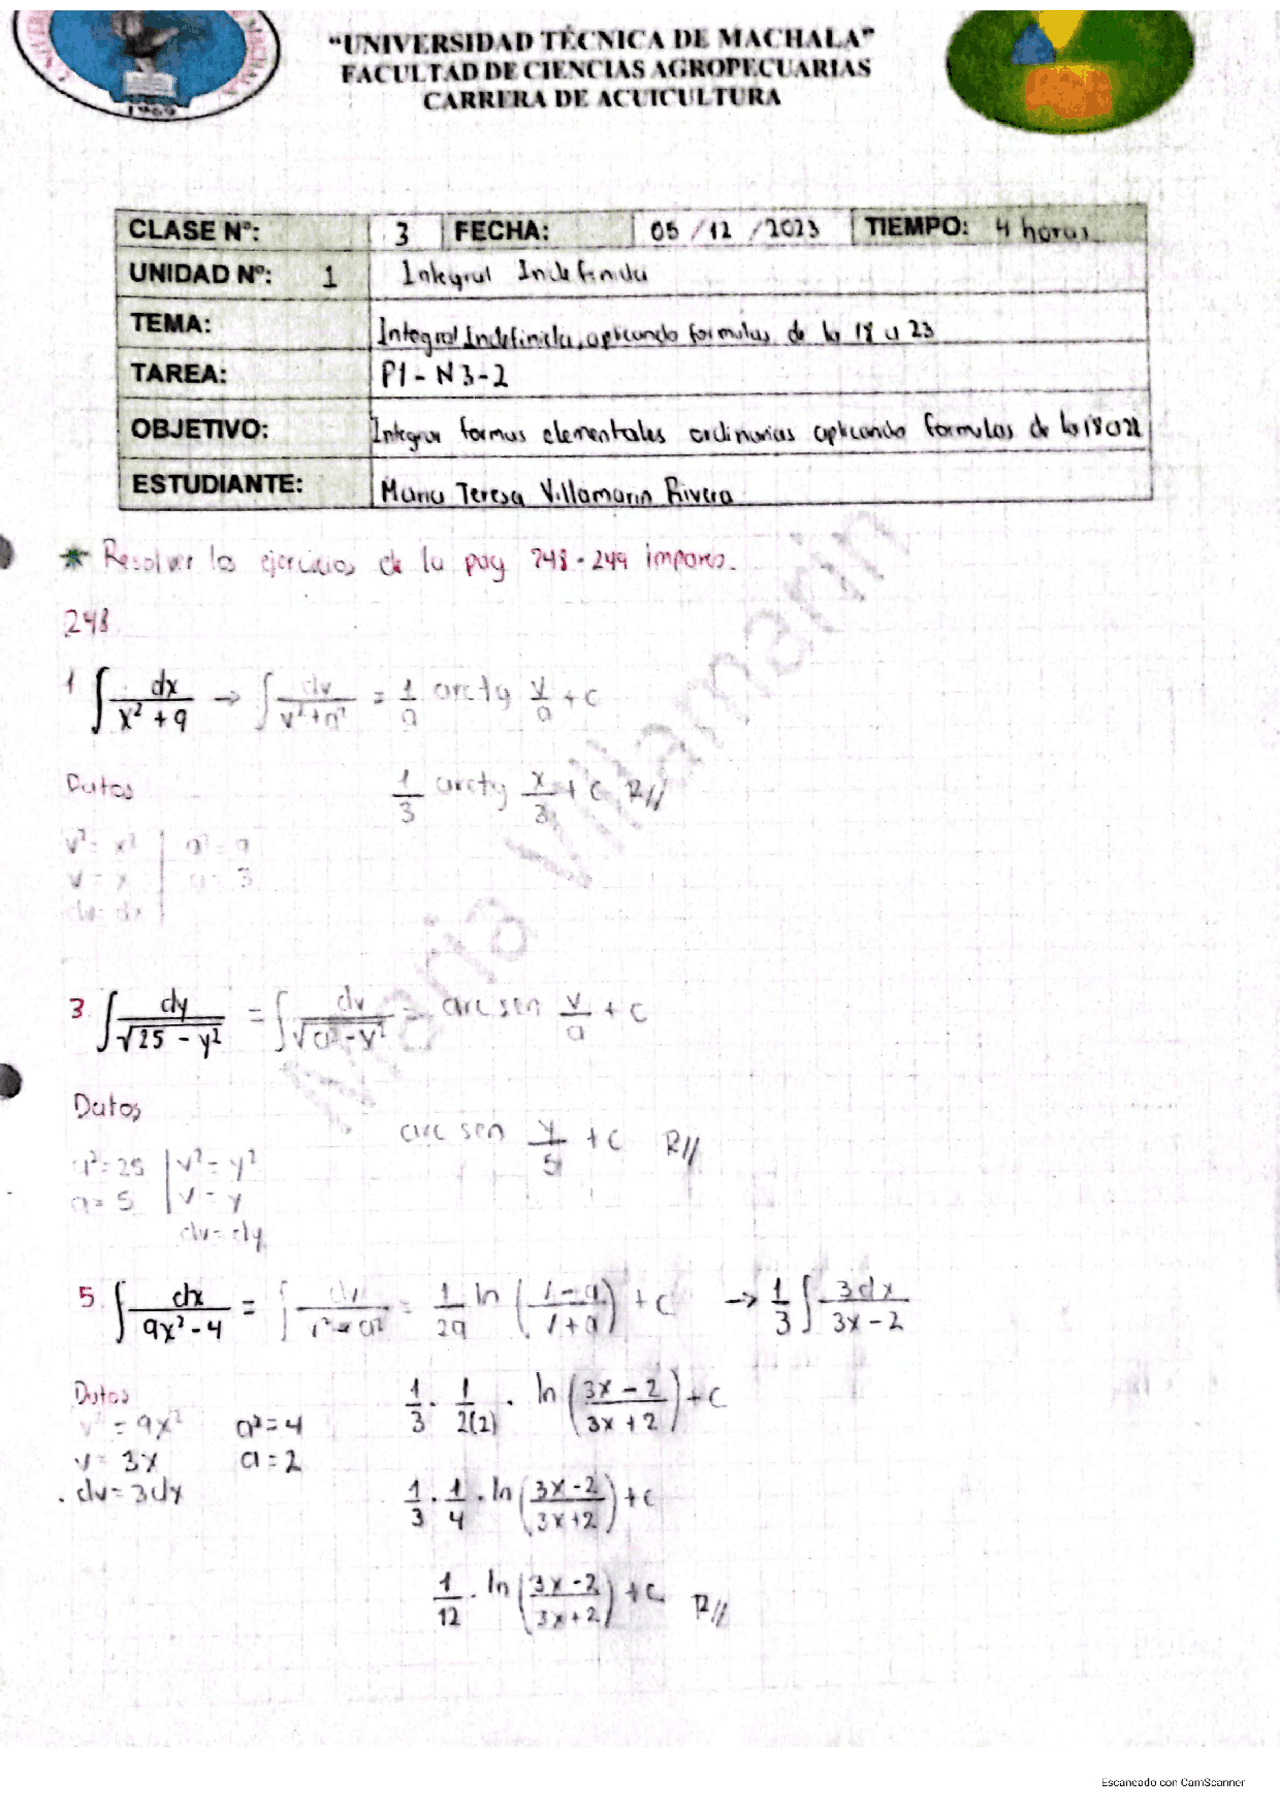 "UNIVERSIDAD TÉCNICA DE MACHALA"
FACULTAD DE CIENCIAS AGROPECUARIAS
CARRERA DE ACUICULTURA
1969
CLASE Nº: 3 FECHA: 05/12/2023 TIEMPO: 4 horas
UNIDAD Nº: 1 Integral Indefinida
TEMA: Integral Indefinida, aplicando formulas de la 18 a 23
TAREA: P1-N3-2
OBJETIVO: Integrar formas elementales ordinarias aplicando formulas de la 18 a 22
ESTUDIANTE: Maria Teresa Villamarin Rivera
* Resolver los ejercicios de la pag 248-249 impares.
248.
1 ∫ dx/(x² + 9) → ∫ dv/(v² + a²) = 1/a arctg v/a + c
Datos
1/3 arctg x/3 + c R//
v² = x² | a² = 9
v = x | a = 3
dv = dx |
3. ∫ dy/√(25 - y²) = ∫ dv/√(a² - v²) = arc sen v/a + c
Datos
arc sen y/5 + c R//
a² = 25 | v² = y²
a = 5 | v = y
dv = dy
5. ∫ dx/(9x² - 4) = ∫ dv/(v² - a²) = 1/2a ln (v - a/v + a) + c → 1/3 ∫ 3dx/(3x - 2)
Datos
v² = 9x² a² = 4
v = 3x a = 2
dv = 3dx
1/3 . 1/2(2) . ln (3x - 2/3x + 2) + c
1/3 . 1/4 . ln (3x - 2/3x + 2) + c
1/12 . ln (3x - 2/3x + 2) + c R//
Maria Villamarin
Escaneado con CamScanner